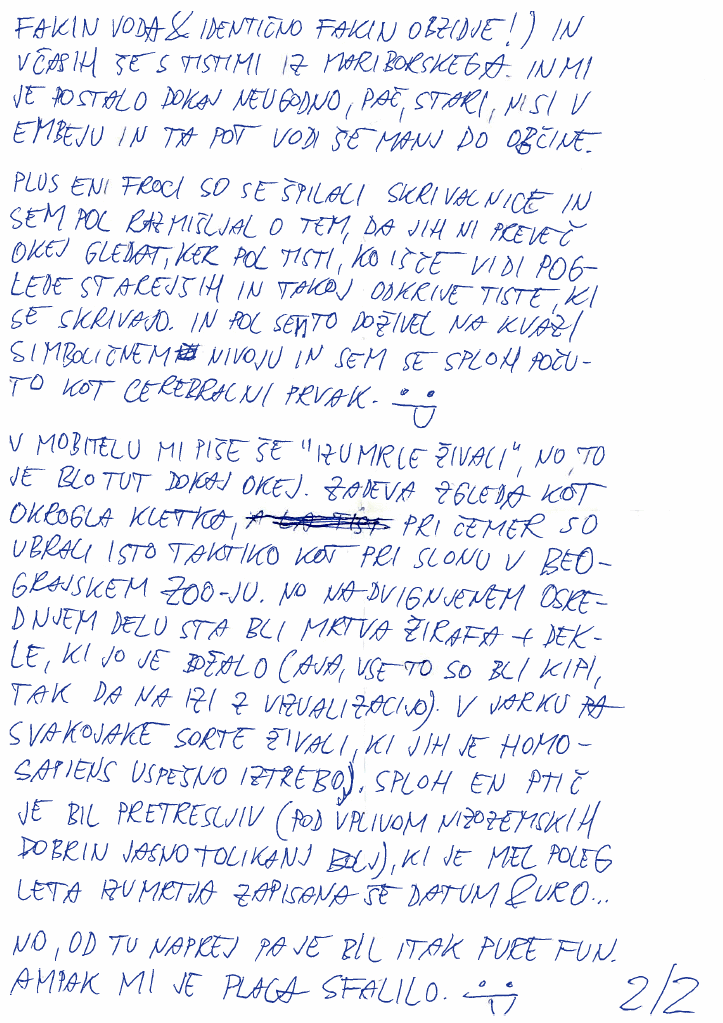 FAKIN VODA & IDENTIČNO FAKIN OBZIDJE!) IN
VČASIH ŠE S TISTIMI IZ MARIBORSKEGA. IN MI
JE POSTALO DOKAJ NEUGODNO, PAČ, STARI, NISI V
EMBEJU IN TA POT VODI ŠE MANJ DO OBČINE.
PLUS ENI FROCI SO SE ŠPILALI SKRIVALNICE IN
SEM POL RAZMIŠLJAL O TEM, DA JIH NI PREVEČ
OKEJ GLEDAT, KER POL TISTI, KO IŠČE VIDI POG-
LEDE STAREJŠIH IN TAKOJ ODKRIJE TISTE, KI
SE SKRIVAJO. IN POL SEM TO DOŽIVEL NA KVAZI
SIMBOLIČNEM NIVOJU IN SEM SE SPLOH POČU-
TO KOT CEREBRALNI PRVAK.
V MOBITELU MI PIŠE ŠE "IZUMRLE ŽIVALI", NO, TO
JE BLO TUT DOKAJ OKEJ. ZADEVA ZGLEDA KOT
OKROGLA KLETKA, PRI ČEMER SO
UBRALI ISTO TAKTIKO KOT PRI SLONU V BEO-
GRAJSKEM ZOO-JU. NO NA DVIGNJENEM OSRE-
DNJEM DELU STA BLI MRTVA ŽIRAFA + DEK-
LE, KI JO JE DŽALO (AJA, VSE TO SO BLI KIPI,
TAK DA NA IZI Z VIZUALIZACIJO). V JARKU PA
SVAKOJAKE SORTE ŽIVALI, KI JIH JE HOMO-
SAPIENS USPEŠNO IZTREBO). SPLOH EN PTIČ
JE BIL PRETRESLJIV (POD VPLIVOM NIZOZEMSKIH
DOBRIN JASNO TOLIKANJ BOLJ), KI JE MEL POLEG
LETA IZUMRTJA ZAPISANA ŠE DATUM & URO...
NO, OD TU NAPREJ PA JE BIL ITAK PURE FUN.
AMPAK MI JE PLACA SFALILO.
2/2